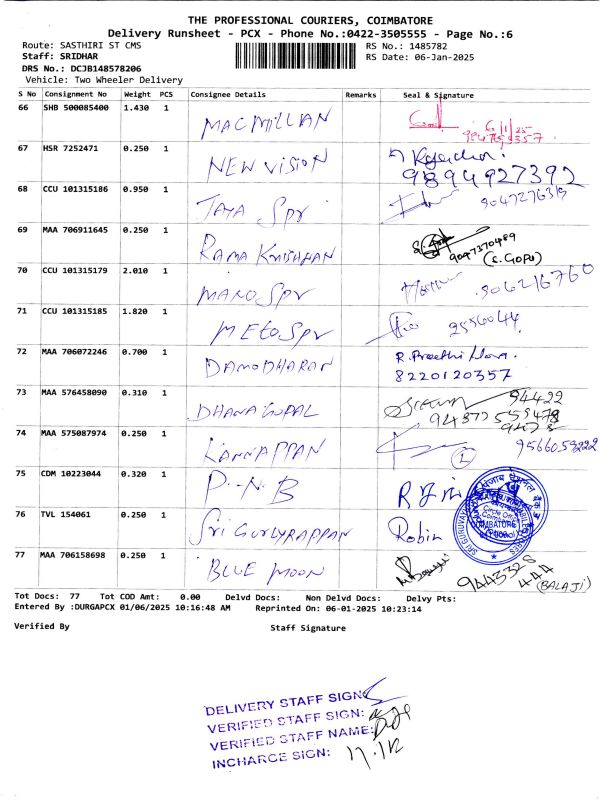 THE PROFESSIONAL COURIERS, COIMBATORE
Delivery Runsheet - PCX - Phone No.:0422-3505555 - Page No.:6
Route: SASTHIRI ST CMS RS No.: 1485782
Staff: SRIDHAR RS Date: 06-Jan-2025
DRS No.: DCJB148578206
Vehicle: Two Wheeler Delivery
S No Consignment No Weight PCS Consignee Details Remarks Seal & Signature
66 SHB 500085400 1.430 1 MACMILLAN
67 HSR 7252471 0.250 1 NEW VISION 9894927392
68 CCU 101315186 0.950 1 JAYA Spr
69 MAA 706911645 0.250 1 RAMA KRISHNAN 9047370489 (S.GOPU)
70 CCU 101315179 2.010 1 MANO Spr 906216760
71 CCU 101315185 1.820 1 METO Spr 2556044
72 MAA 706072246 0.700 1 DAMODHARAN R. Preethi 8220120357
73 MAA 576458090 0.310 1 DHANA GOPAL 94422
74 MAA 575087974 0.250 1 KANNAPPAN 1 9566059222
75 CDM 10223044 0.320 1 P-N-B
76 TVL 154061 0.250 1 Sri GURUYRAPPAN Robin
COIMBATORE
77 MAA 706158698 0.250 1 BLUE MOON 9443328 444 (BALAJI)
Tot Docs: 77 Tot COD Amt: 0.00 Delvd Docs: Non Delvd Docs: Delvy Pts:
Entered By :DURGAPCX 01/06/2025 10:16:48 AM Reprinted On: 06-01-2025 10:23:14
Verified By Staff Signature
DELIVERY STAFF SIGN:
VERIFIED STAFF SIGN:
VERIFIED STAFF NAME:
INCHARGE SIGN: